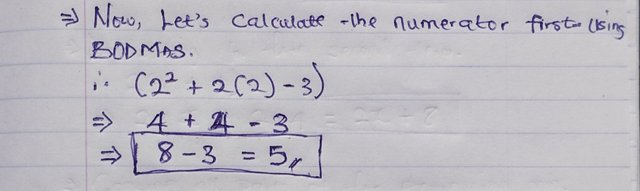 ⇒ Now, Let's Calculate the numerator first Using
BODMAS.
∴ (2² + 2(2) - 3)
⇒ 4 + 4 - 3
⇒ 8 - 3 = 5,,